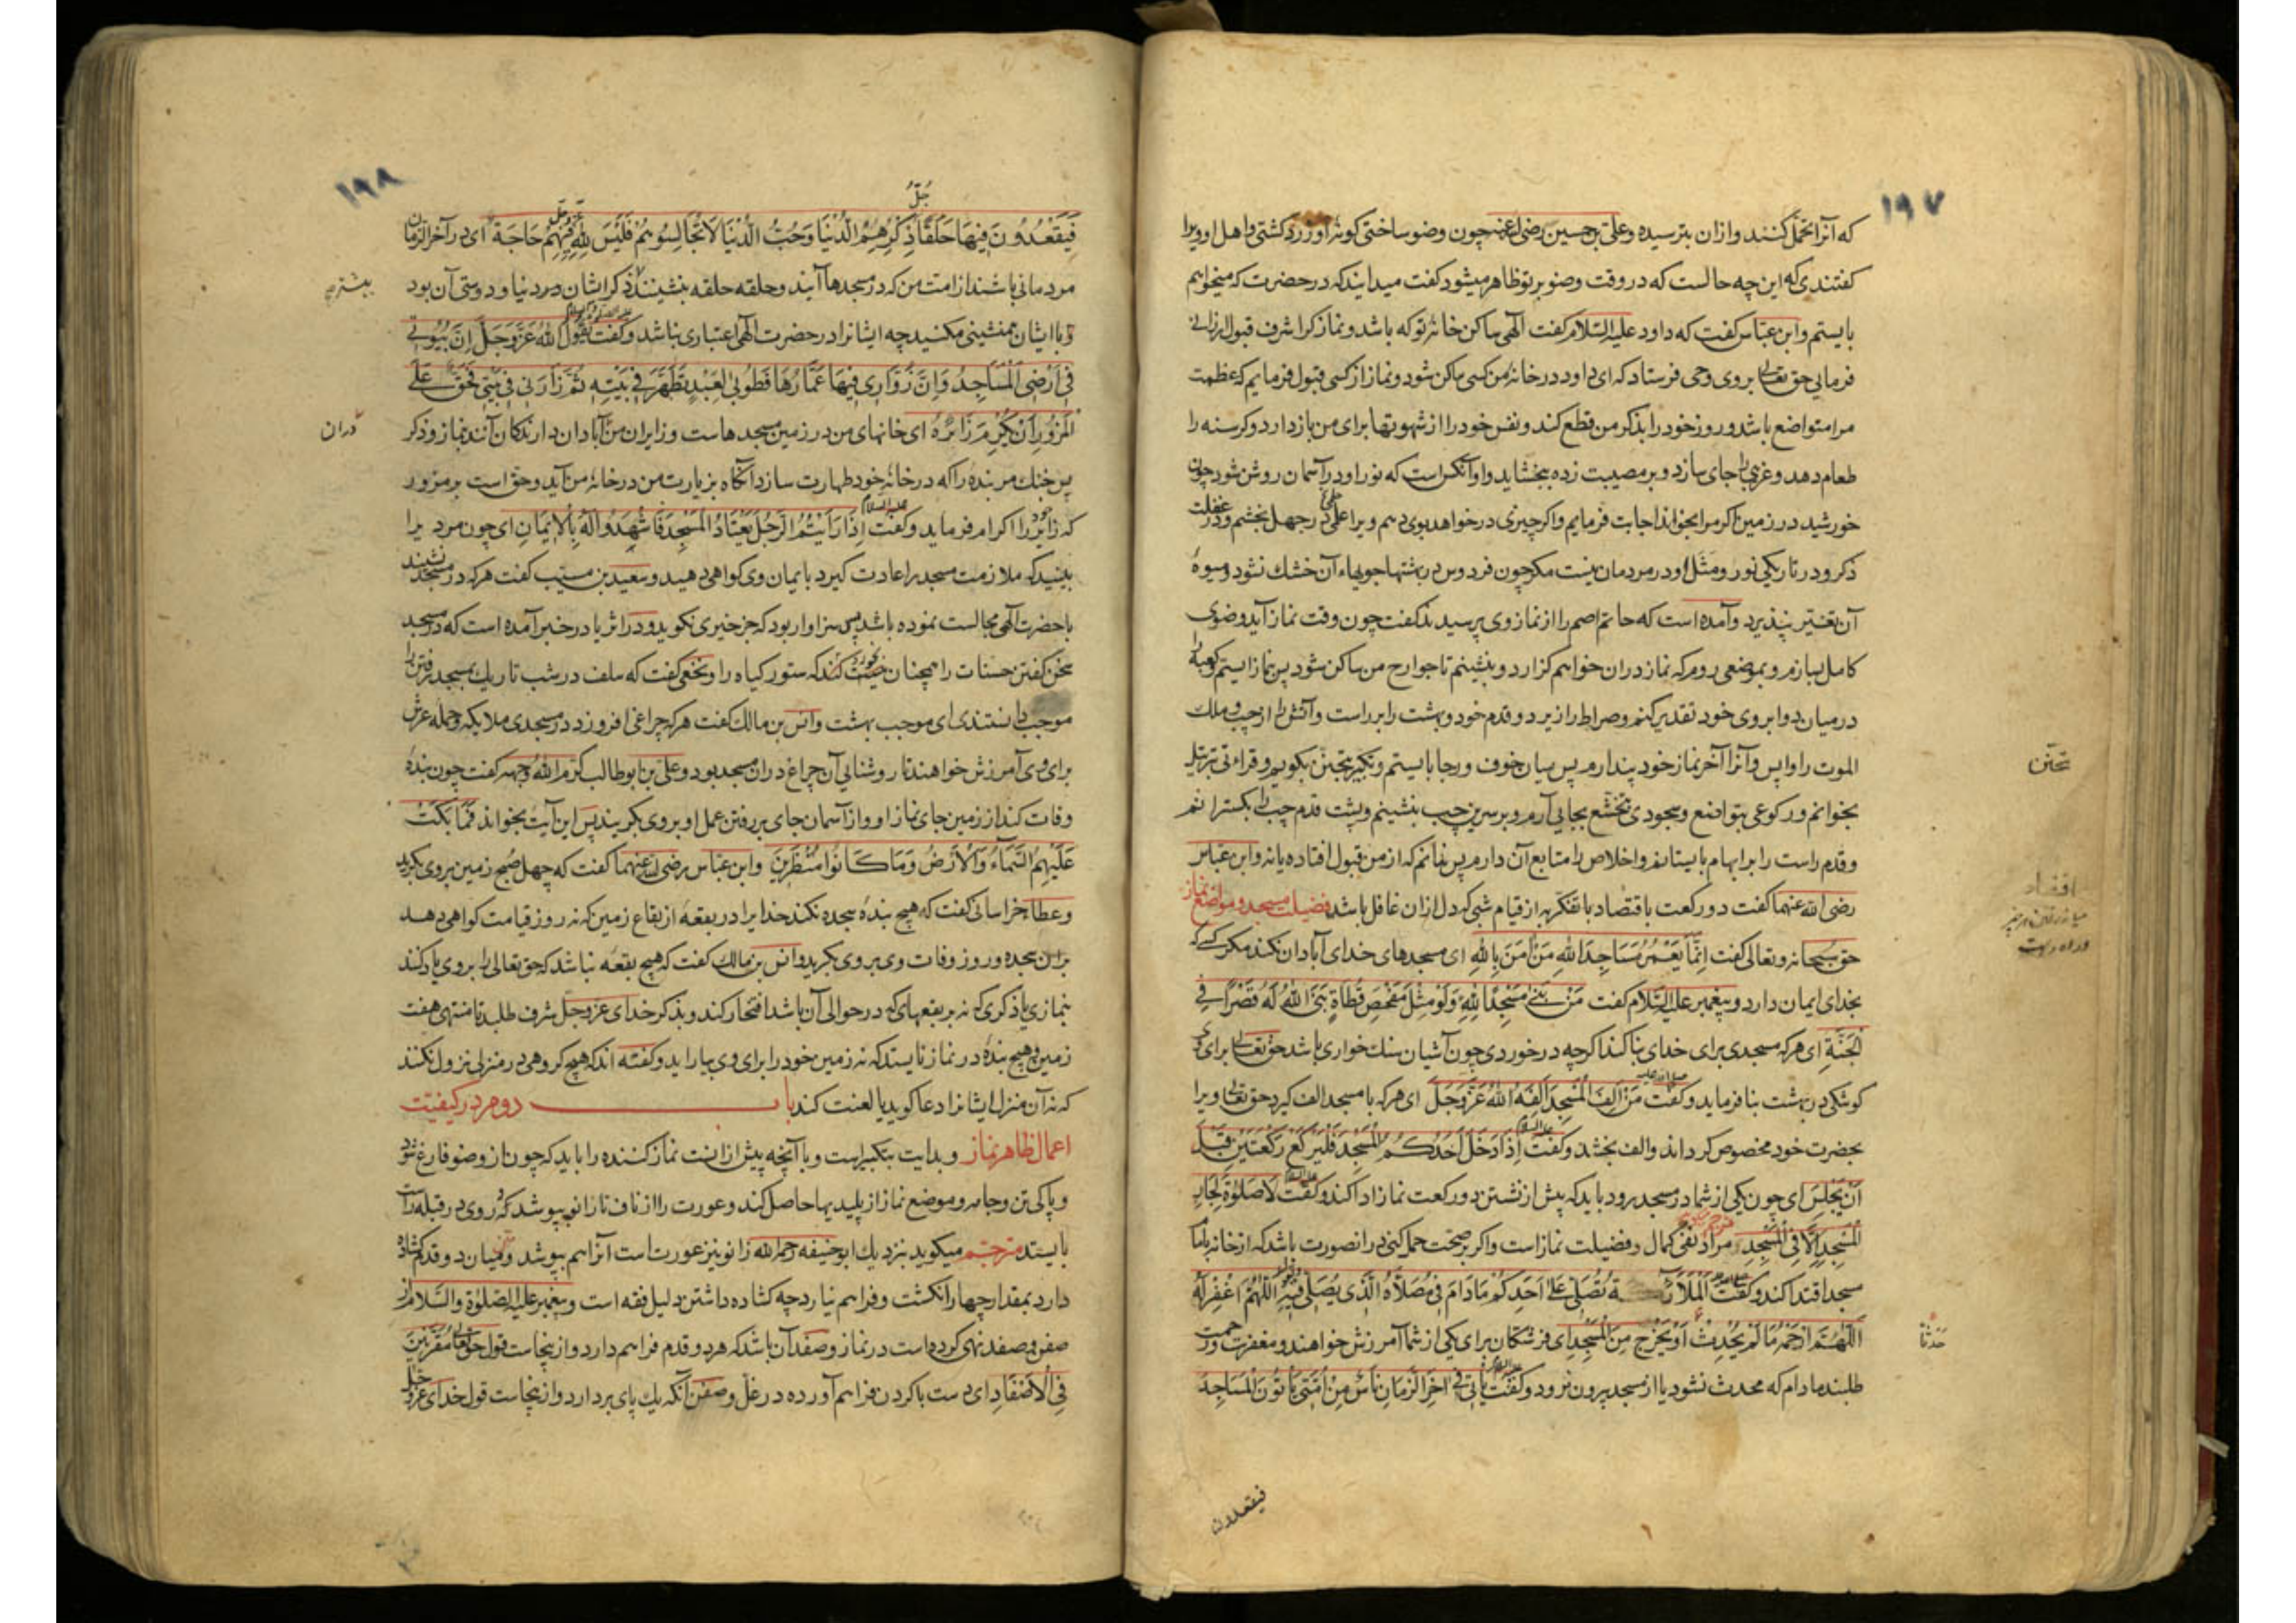 ۱۹۷
که آنرا تحمل کنند و ازان بترسیده و علی بن حسین رضی الله عنه چون وضو ساختی کونه او زرد کشتی و اهل او ویرا
کفتندی که این چه حالست که در وقت وضو بر تو ظاهر میشود کفت میدانید که در حضرت که میخواهم
بایستم و ابن عباس کفت که داود علیه السلام کفت الهی ساکن خانه تو که باشد و نماز کرا شرف قبول ارزانی
فرمانی حق تعالی بروی وحی فرستاد که ای داود در خانه من کسی ساکن شود و نماز از کسی قبول فرمایم که عظمت
مرا متواضع باشد و روز خود را بذکر من قطع کند و نفس خود را از شهوتها برای من بازدارد و کرسنه را
طعام دهد و غریبی را جای سازد و بر مصیبت زده ببخشاید و او آنکس است که نور او در آسمان روشن شود چون
خورشید در زمین اکر مرا بخواند اجابت فرمایم و اکر چیزی درخواهد بوی دهم و ویرا علمی در جهل بخشم و در غفلت
ذکر و در تاریکی نور و مثل او در مردمان نیست مکر چون فردوس در بهشتها جویهاء آن خشک نشود و میوهٔ
آن تغییر نپذیرد و آمده است که حاتم اصم را از نماز وی پرسیدند کفت چون وقت نماز آید وضوی
کامل بسازم و بموضعی روم که نماز دران خواهم کزارد و بنشینم تا جوارح من ساکن شود پس بنماز ایستم کعبه را
در میان دو ابروی خود تقدیر کنم و صراط را زیر دو قدم خود و بهشت را بر راست و آتش را از چپ و ملک
الموت را واپس و آنرا آخر نماز خود پندارم پس میان خوف و رجا بایستم و تکبیر بتحنن بکویم و قراءتی بترتیل
تحنن
بخوانم و رکوعی بتواضع و سجودی بتخشع بجای آرم و بر سرین چپ بنشینم و پشت قدم چپ را بکسترانم
و قدم راست را بر ابهام بایستانم و اخلاص را متابع آن دارم پس ندانم که از من قبول افتاده یا نه و ابن عباس
رضی الله عنهما کفت دو رکعت باقتصاد با تفکر به از قیام شبی که دل ازان غافل باشد فضیلت مسجد و مواضع نماز
اقتصاد
حق سبحانه و تعالی کفت اِنَّمَا یَعْمُرُ مَسَاجِدَ اللهِ مَنْ اٰمَنَ بِاللهِ ای مسجدهای خدای آبادان نکند مکر کسی که
بخدای ایمان دارد و پیغمبر علیه السلام کفت مَنْ بَنَی مَسْجِدًا لِلّٰهِ وَلَوْ مِثْلَ مَفْحَصِ قَطَاةٍ بَنَی اللهُ لَهُ قَصْرًا فِی
الْجَنَّةِ ای هرکه مسجدی برای خدای بنا کند اکرچه در خوردی چون آشیان سنک خواری باشد حق تعالی برای وی
کوشکی در بهشت بنا فرماید و کفت مَنْ اَلِفَ الْمَسْجِدَ اَلِفَهُ اللهُ عَزَّ وَجَلَّ ای هرکه با مسجد الف کیرد حق تعالی ویرا
بحضرت خود مخصوص کرداند و الف بخشد و کفت اِذَا دَخَلَ اَحَدُکُمُ الْمَسْجِدَ فَلْیَرْکَعْ رَکْعَتَیْنِ قَبْلَ
اَنْ یَجْلِسَ ای چون یکی از شما در مسجد رود باید که پیش از نشستن دو رکعت نماز ادا کند و کفت لَا صَلٰوةَ لِجَارِ
الْمَسْجِدِ اِلَّا فِی الْمَسْجِدِ مراد نفی کمال و فضیلت نماز است و اکر بر صحت حمل کنی در انصورت باشد که از خانه بامام
مسجد اقتدا کند و کفت اَلْمَلَائِکَةُ تُصَلِّی عَلٰی اَحَدِکُمْ مَادَامَ فِی مُصَلَّاهُ الَّذِی یُصَلِّی فِیهِ اَللّٰهُمَّ اغْفِرْ لَهُ
اَللّٰهُمَّ ارْحَمْهُ مَا لَمْ یُحْدِثْ اَوْ یَخْرُجْ مِنَ الْمَسْجِدِ ای فرشتکان برای یکی از شما آمرزش خواهند و مغفرت و رحمت
حَدَثًا
طلبند مادام که محدث نشود یا از مسجد بیرون نرود و کفت یَأْتِی فِی اٰخِرِ الزَّمَانِ نَاسٌ مِنْ اُمَّتِی یَأْتُونَ الْمَسَاجِدَ
فیقعدون
۱۹۸
جُلُّ
فَیَقْعُدُونَ فِیهَا حَلَقًا ذِکْرُهُمُ الدُّنْیَا وَحُبُّ الدُّنْیَا لَا تُجَالِسُوهُمْ فَلَیْسَ لِلّٰهِ فِیهِمْ حَاجَةٌ ای در آخر الزمان
مردمانی باشند از امت من که در مسجدها آیند و حلقه حلقه بنشینند ذکر ایشان در دنیا و دوستی آن بود
بیشتر
و با ایشان همنشینی مکنید چه ایشانرا در حضرت الهی اعتباری نباشد و کفت یَقُولُ اللهُ عَزَّ وَجَلَّ اِنَّ بُیُوتِی
فِی اَرْضِی الْمَسَاجِدُ وَاِنَّ زُوَّارِی فِیهَا عُمَّارُهَا فَطُوبٰی لِعَبْدٍ تَطَهَّرَ فِی بَیْتِهِ ثُمَّ زَارَنِی فِی بَیْتِی فَحَقٌّ عَلَی
الْمَزُورِ اَنْ یُکْرِمَ زَائِرَهُ ای خانهای من در زمین مسجدهاست و زایران من آبادان دارندکان آنند نماز و ذکر
دران
پس خنک مر بنده را که در خانه خود طهارت سازد آنکاه بزیارت من در خانه من آید و حق است بر مزور
که زایر را اکرام فرماید و کفت اِذَا رَاَیْتُمُ الرَّجُلَ یَعْتَادُ الْمَسْجِدَ فَاشْهَدُوا لَهُ بِالْاِیمَانِ ای چون مردی را
ببینید که ملازمت مسجد را عادت کیرد بایمان وی کواهی دهید و سعید بن مسیب کفت هرکه در مسجد نشیند
با حضرت الهی مجالست نموده باشد پس سزاوار بود که جز خیری نکوید و در اثر یا در خبر آمده است که در مسجد
سخن کفتن حسنات را همچنان خورد که ستور کیاه را و نخعی کفت که سلف در شب تاریک بمسجد رفتن را
موجب دانستندی ای موجب بهشت و انس بن مالک کفت هرکه چراغی افروزد در مسجدی ملایکه و حملهٔ عرش
برای وی آمرزش خواهند تا روشنایی آن چراغ دران مسجد بود و علی بن ابو طالب کرم الله وجهه کفت چون بندهٔ
وفات کند از زمین جای نماز او و از آسمان جای بر رفتن عمل او بروی بکریند پس این آیت بخواند فَمَا بَکَتْ
عَلَیْهِمُ السَّمَاءُ وَالْاَرْضُ وَمَا کَانُوا مُنْظَرِینَ و ابن عباس رضی الله عنهما کفت که چهل صبح زمین بروی بکرید
و عطا خراسانی کفت که هیچ بندهٔ سجده نکند خدایرا در بقعهٔ از بقاع زمین که نه روز قیامت کواهی دهد
بران سجده و روز وفات وی بروی بکرید و انس بن مالک کفت که هیچ بقعه نباشد که حق تعالی را بروی یاد کنند
بنمازی یا ذکری که نه بر بقعهای که در حوالی آن باشد افتخار کند و بذکر خدای عز و جل شرف طلبد تا منتهی هفت
زمین و هیچ بندهٔ در نماز نایستد که نه زمین خود را برای وی بیاراید و کفته اند که هیچ کروهی در منزلی نزول نکنند
که نه آن منزل ایشانرا دعا کوید یا لعنت کند باب دوم در کیفیت
اعمال ظاهر نماز و بدایت بتکبیر است و با آنچه پیش ازانست نماز کننده را باید که چون از وضو فارغ شود
و پاکی تن و جامه و موضع نماز از پلیدیها حاصل کند و عورت را از ناف تا زانو بپوشد که روی در قبله راست
بایستد مترجم میکوید نزدیک ابو حنیفه رحمه الله زانو نیز عورت است آنرا هم بپوشد و میان دو قدم کشاده
دارد بمقدار چهار انکشت و فراهم نیارد چه کشاده داشتن دلیل فقه است و پیغمبر علیه الصلوة والسلام از
صفن و صفد نهی کرده است در نماز و صفد آن باشد که هر دو قدم فراهم دارد و از ینجاست قول حق تعالی مُقَرَّنِینَ
فِی الْاَصْفَادِ ای دست با کردن فراهم آورده در غل و صفن آنکه یک پای بردارد و از ینجاست قول خدای عز و جل